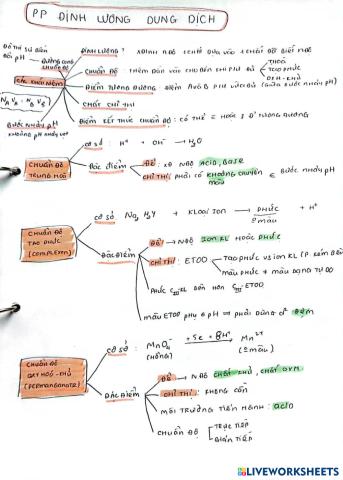 PP ĐỊNH LƯỢNG DUNG DỊCH
ĐỒ THỊ SỰ BIẾN
ĐỔI PH
ĐƯỜNG CONG
CHUẨN ĐỘ
CÁC KHÁI NIỆM
NA VA = NB VB
BƯỚC NHẢY PH
KHOẢNG PH NHẢY VỌT
ĐỊNH LƯỢNG: XĐỊNH NĐỘ 1 CHẤT DỰA VÀO 1 CHẤT ĐÃ BIẾT NĐỘ
CHUẨN ĐỘ THÊM DẦN VÀO CHO ĐẾN KHI PƯ ĐỦ
T.HOÀ
TẠO PHỨC
OXH-KHỬ
ĐIỂM TƯƠNG ĐƯƠNG: ĐIỂM A VÀ B PƯ VỪA ĐỦ (GIỮA BƯỚC NHẢY PH)
CHẤT CHỈ THỊ
ĐIỂM KẾT THÚC CHUẨN ĐỘ: CÓ THỂ = HOẶC ≠ Đ' TƯƠNG ĐƯƠNG
CHUẨN ĐỘ
TRUNG HOÀ
CƠ SỞ: H⁺ + OH⁻ → H₂O
ĐẶC ĐIỂM
ĐỂ: XĐ NĐỘ ACID, BASE
CHỈ THỊ: PHẢI CÓ KHOẢNG CHUYỂN MÀU ∈ BƯỚC NHẢY PH
CHUẨN ĐỘ
TẠO PHỨC
(COMPLEXON)
CƠ SỞ: Na₂H₂Y + KLOẠI ION → PHỨC + H⁺
0 MÀU
ĐẶC ĐIỂM
ĐỂ: → NĐỘ ION KL HOẶC PHỨC
CHỈ THỊ: ETOO
TẠO PHỨC VS ION KL
MÀU PHỨC ≠ MÀU DẠNG TỰ DO
MÀU ETOO PHỤ ∈ PH ⇒ PHẢI DÙNG ĐỆM
CHUẨN ĐỘ
OXY HOÁ-KHỬ
(PERMANGANATE)
CƠ SỞ: MnO₄⁻ +5e + 8H⁺ → Mn²⁺
(HỒNG) (0 MÀU)
ĐẶC ĐIỂM
ĐỂ → NĐỘ CHẤT KHỬ, CHẤT OXH
CHỈ THỊ: KHÔNG CẦN
MÔI TRƯỜNG TIẾN HÀNH: ACID
CHUẨN ĐỘ
TRỰC TIẾP
GIÁN TIẾP
LIVEWORKSHEETS